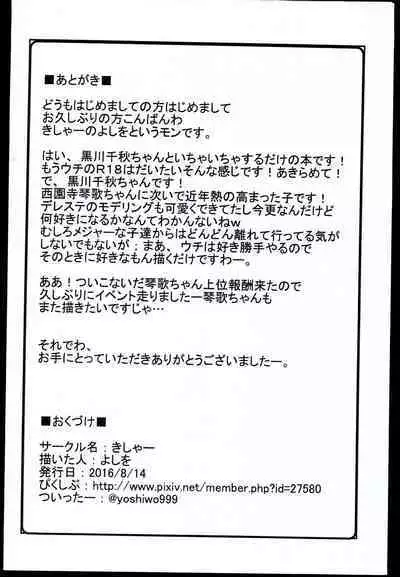 ■あとがき■
どうもはじめましての方はじめまして
お久しぶりの方こんばんわ
きしゃーのよしをというモンです。
はい、黒川千秋ちゃんといちゃいちゃするだけの本です！
もうウチのR18はだいたいそんな感じです！あきらめて！
で、黒川千秋ちゃんです！
西園寺琴歌ちゃんに次いで近年熱の高まった子です！
デレステのモデリングも可愛くできてたし今更なんだけど
何好きになるかなんてわかんないねw
むしろメジャーな子達からはどんどん離れて行ってる気が
しないでもないが；まあ、ウチは好き勝手やるので
そのときに好きなもん描くだけですわー。
ああ！ついこないだ琴歌ちゃん上位報酬来たので
久しぶりにイベント走りましたー琴歌ちゃんも
また描きたいですじゃ…
それでわ、
お手にとっていただきありがとうございましたー。
■おくづけ■
サークル名：きしゃー
描いた人：よしを
発行日：2016/8/14
ぴくしぶ：http://www.pixiv.net/member.php?id=27580
ついったー：@yoshiwo999